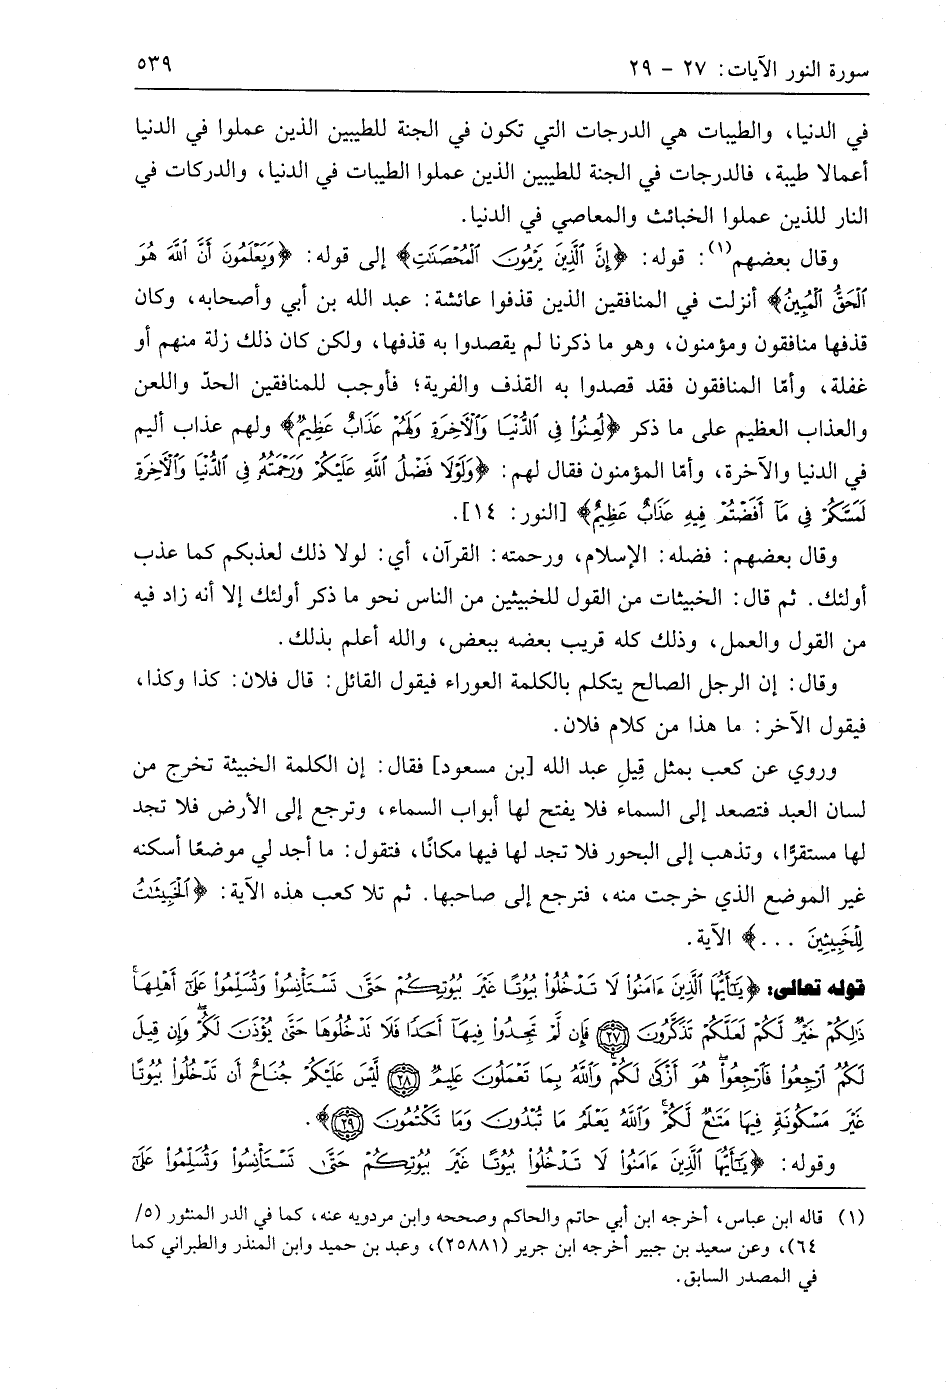 سورة النور الآيات: ٢٧ - ٢٩
٥٣٩
في الدنيا، والطيبات هي الدرجات التي تكون في الجنة للطيبين الذين عملوا في الدنيا
أعمالا طيبة، فالدرجات في الجنة للطيبين الذين عملوا الطيبات في الدنيا، والدركات في
النار للذين عملوا الخبائث والمعاصي في الدنيا.
وقال بعضهم(١): قوله: ﴿إِنَّ ٱلَّذِينَ يَرْمُونَ ٱلْمُحْصَنَٰتِ﴾ إلى قوله: ﴿وَيَعْلَمُونَ أَنَّ ٱللَّهَ هُوَ
ٱلْحَقُّ ٱلْمُبِينُ﴾ أنزلت في المنافقين الذين قذفوا عائشة: عبد الله بن أبي وأصحابه، وكان
قذفها منافقون ومؤمنون، وهو ما ذكرنا لم يقصدوا به قذفها، ولكن كان ذلك زلة منهم أو
غفلة، وأمّا المنافقون فقد قصدوا به القذف والفرية؛ فأوجب للمنافقين الحدّ واللعن
والعذاب العظيم على ما ذكر ﴿لُعِنُوا۟ فِى ٱلدُّنْيَا وَٱلْءَاخِرَةِ وَلَهُمْ عَذَابٌ عَظِيمٌ﴾ ولهم عذاب أليم
في الدنيا والآخرة، وأمّا المؤمنون فقال لهم: ﴿وَلَوْلَا فَضْلُ ٱللَّهِ عَلَيْكُمْ وَرَحْمَتُهُۥ فِى ٱلدُّنْيَا وَٱلْءَاخِرَةِ
لَمَسَّكُمْ فِى مَآ أَفَضْتُمْ فِيهِ عَذَابٌ عَظِيمٌ﴾ [النور: ١٤].
وقال بعضهم: فضله: الإسلام، ورحمته: القرآن، أي: لولا ذلك لعذبكم كما عذب
أولئك. ثم قال: الخبيثات من القول للخبيثين من الناس نحو ما ذكر أولئك إلا أنه زاد فيه
من القول والعمل، وذلك كله قريب بعضه ببعض، والله أعلم بذلك.
وقال: إن الرجل الصالح يتكلم بالكلمة العوراء فيقول القائل: قال فلان: كذا وكذا،
فيقول الآخر: ما هذا من كلام فلان.
وروي عن كعب بمثل قِيلِ عبد الله [بن مسعود] فقال: إن الكلمة الخبيثة تخرج من
لسان العبد فتصعد إلى السماء فلا يفتح لها أبواب السماء، وترجع إلى الأرض فلا تجد
لها مستقرًا، وتذهب إلى البحور فلا تجد لها فيها مكانًا، فتقول: ما أجد لي موضعًا أسكنه
غير الموضع الذي خرجت منه، فترجع إلى صاحبها. ثم تلا كعب هذه الآية: ﴿ٱلْخَبِيثَٰتُ
لِلْخَبِيثِينَ ...﴾ الآية.
قوله تعالى: ﴿يَٰٓأَيُّهَا ٱلَّذِينَ ءَامَنُوا۟ لَا تَدْخُلُوا۟ بُيُوتًا غَيْرَ بُيُوتِكُمْ حَتَّىٰ تَسْتَأْنِسُوا۟ وَتُسَلِّمُوا۟ عَلَىٰٓ أَهْلِهَاۚ
ذَٰلِكُمْ خَيْرٌ لَّكُمْ لَعَلَّكُمْ تَذَكَّرُونَ ۝٢٧ فَإِن لَّمْ تَجِدُوا۟ فِيهَآ أَحَدًا فَلَا تَدْخُلُوهَا حَتَّىٰ يُؤْذَنَ لَكُمْۖ وَإِن قِيلَ
لَكُمُ ٱرْجِعُوا۟ فَٱرْجِعُوا۟ۖ هُوَ أَزْكَىٰ لَكُمْۚ وَٱللَّهُ بِمَا تَعْمَلُونَ عَلِيمٌ ۝٢٨ لَّيْسَ عَلَيْكُمْ جُنَاحٌ أَن تَدْخُلُوا۟ بُيُوتًا
غَيْرَ مَسْكُونَةٍ فِيهَا مَتَٰعٌ لَّكُمْۚ وَٱللَّهُ يَعْلَمُ مَا تُبْدُونَ وَمَا تَكْتُمُونَ ۝٢٩﴾.
وقوله: ﴿يَٰٓأَيُّهَا ٱلَّذِينَ ءَامَنُوا۟ لَا تَدْخُلُوا۟ بُيُوتًا غَيْرَ بُيُوتِكُمْ حَتَّىٰ تَسْتَأْنِسُوا۟ وَتُسَلِّمُوا۟ عَلَىٰٓ
(١) قاله ابن عباس، أخرجه ابن أبي حاتم والحاكم وصححه وابن مردويه عنه، كما في الدر المنثور (٥/
٦٤)، وعن سعيد بن جبير أخرجه ابن جرير (٢٥٨٨١)، وعبد بن حميد وابن المنذر والطبراني كما
في المصدر السابق.